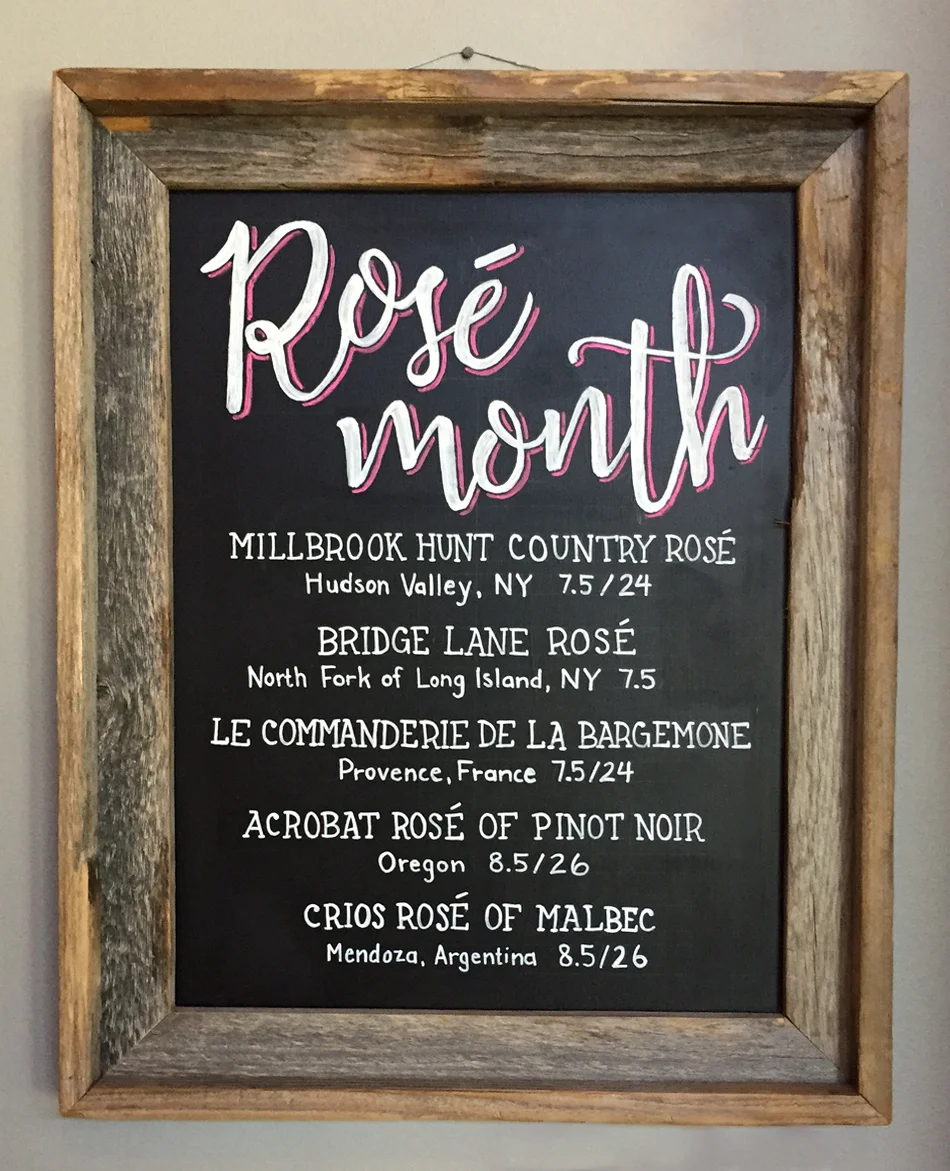 Rosé
month
MILLBROOK HUNT COUNTRY ROSÉ
Hudson Valley, NY 7.5/24
BRIDGE LANE ROSÉ
North Fork of Long Island, NY 7.5
LE COMMANDERIE DE LA BARGEMONE
Provence, France 7.5/24
ACROBAT ROSÉ OF PINOT NOIR
Oregon 8.5/26
CRIOS ROSÉ OF MALBEC
Mendoza, Argentina 8.5/26